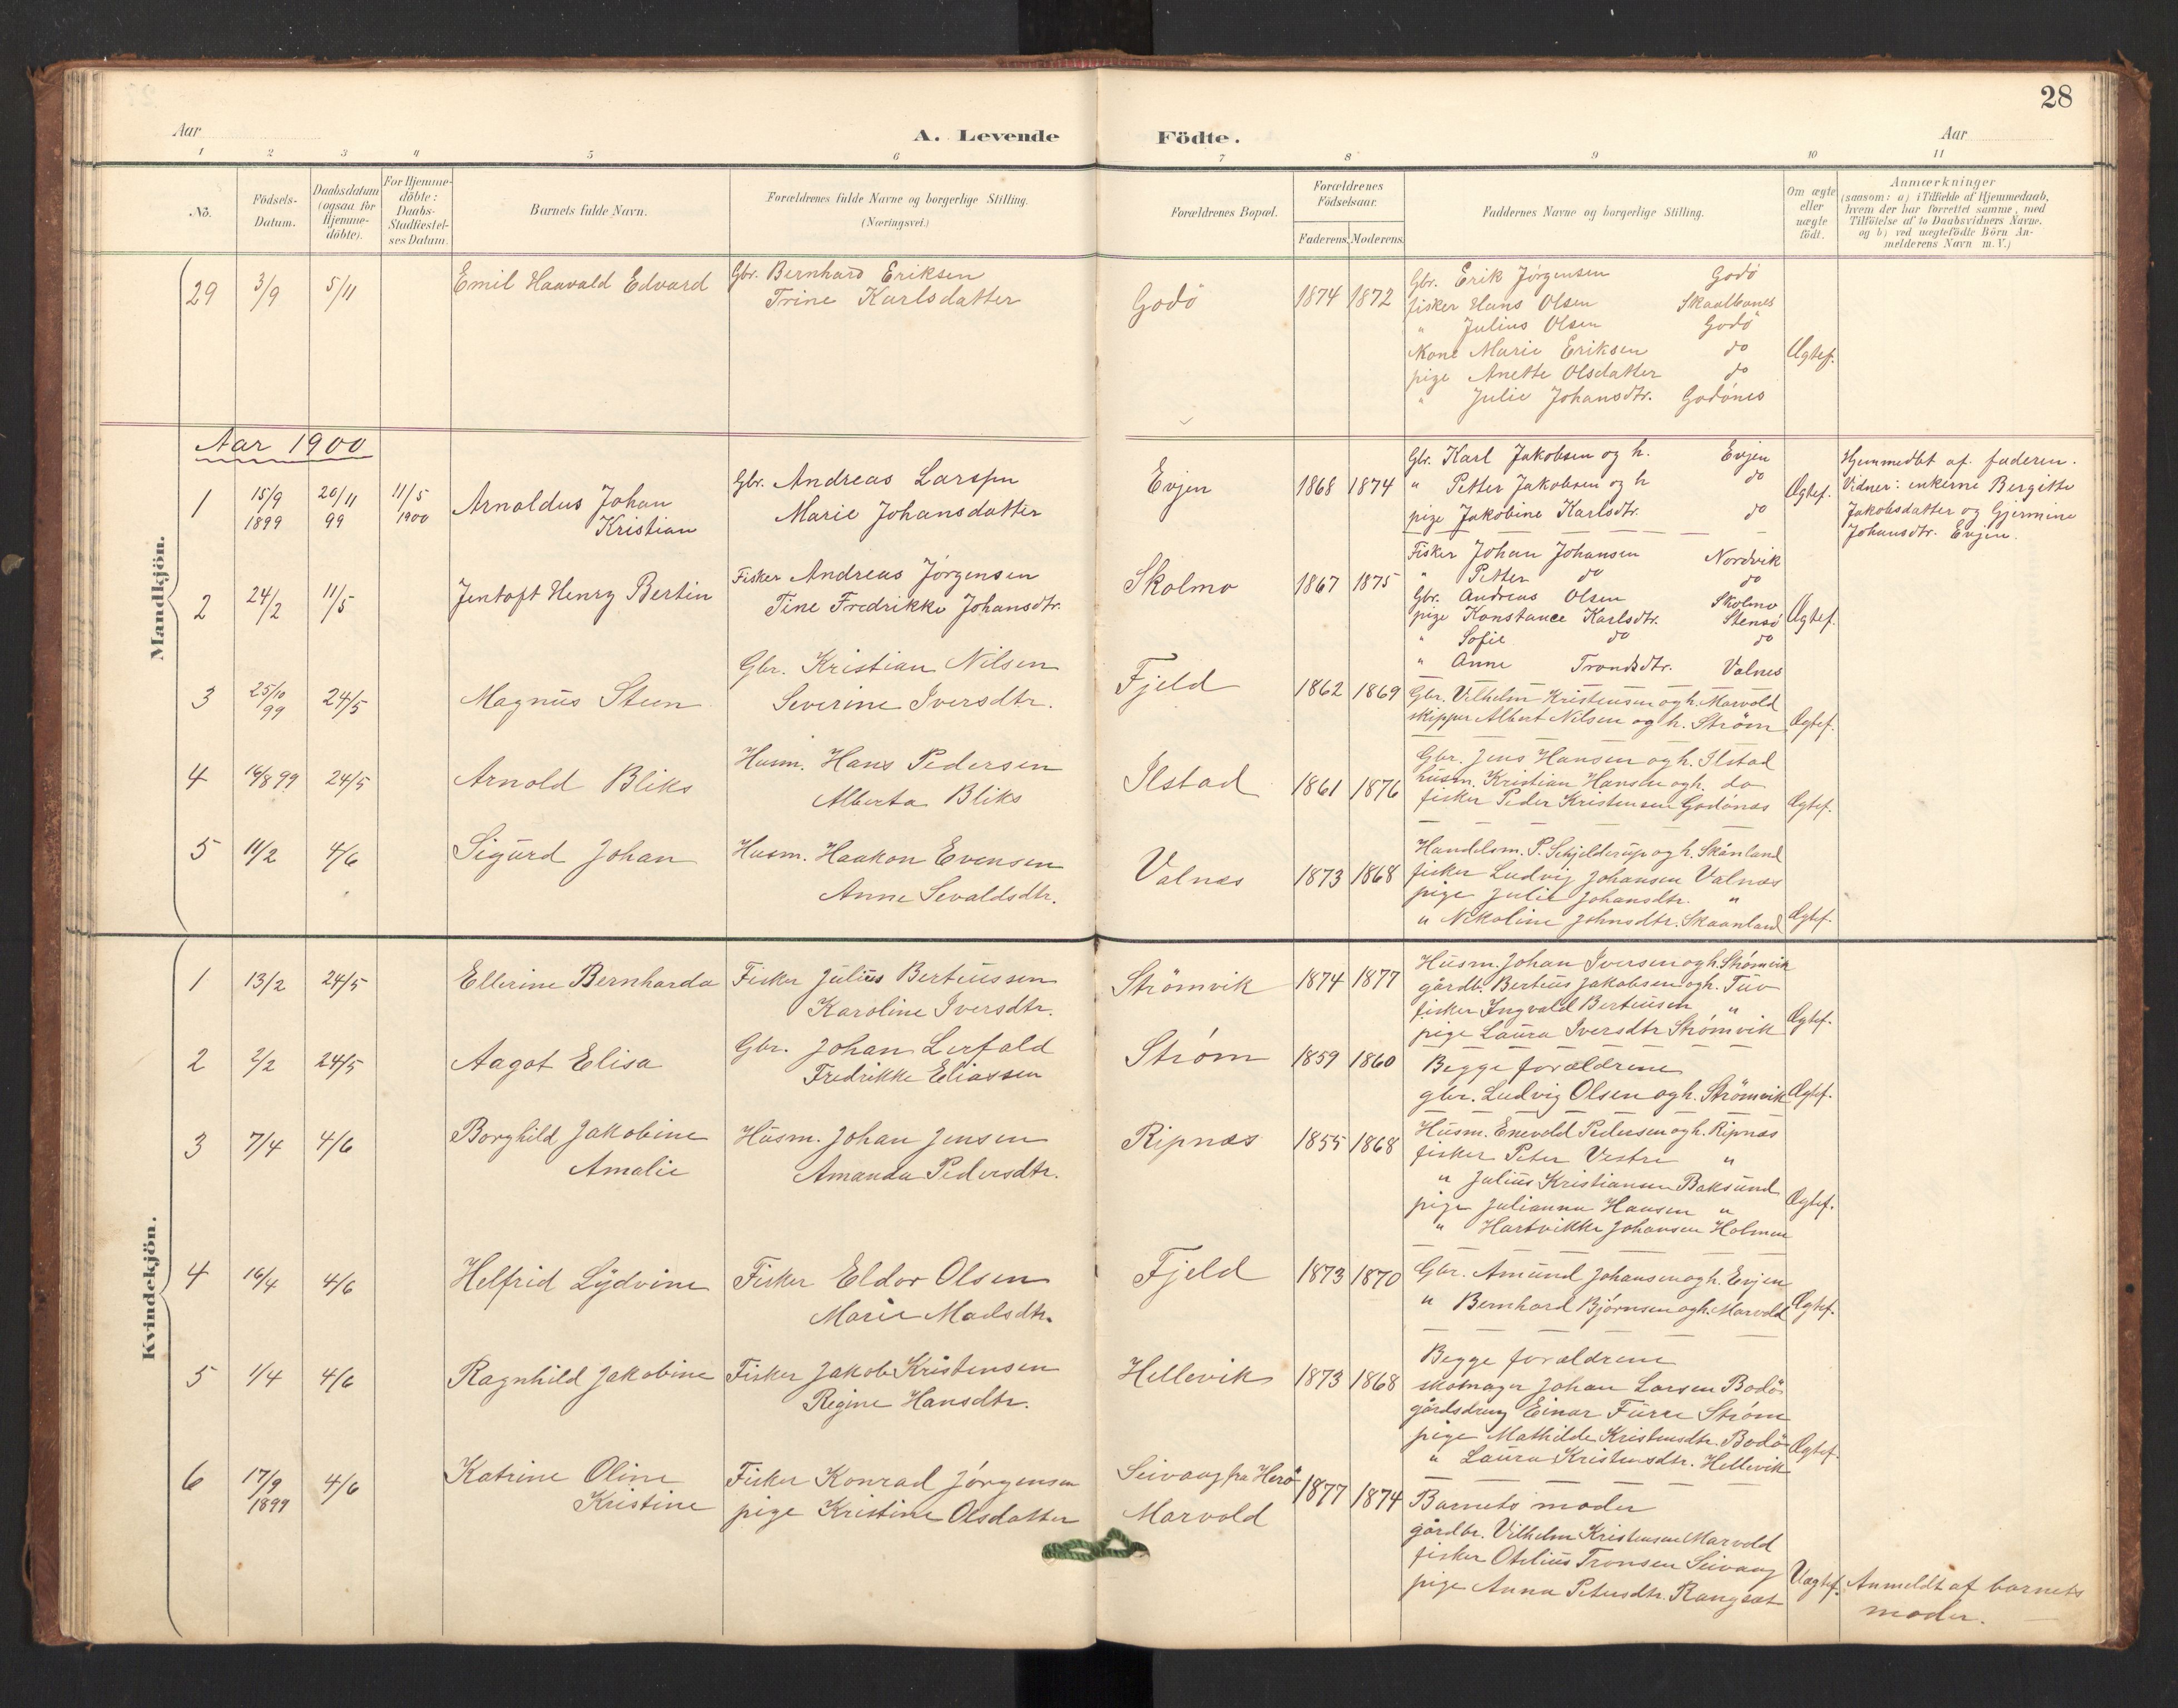 28
Aar
A. Levende
Födte.
Aar
1 2 3 4 5 6 7 8 9 10 11
No.
Födsels-
Datum.
Daabsdatum
(ogsaa for
Hjemme-
döbte).
For Hjemme-
döbte:
Daabs-
Stadfæstel-
ses Datum.
Barnets fulde Navn.
Forældrenes fulde Navne og borgerlige Stilling.
(Næringsvei.)
Forældrenes Bopæl.
Forældrenes
Födselsaar.
Faderens. Moderens.
Faddernes Navne og borgerlige Stilling.
Om ægte
eller
uægte
födt.
Anmærkninger
(saasom: a) i Tilfælde af Hjemmedaab,
hvem der har forrettet samme, med
Tilföielse af to Daabsvidners Navne.
og b) ved uægtefödte Börn An-
melderens Navn m. V.)
29 3/9 5/11
Emil Haavald Edvard
Gbr. Bernhard Eriksen
Trine Karlsdatter
Godö
1874 1872
Gbr. Erik Jørgensen Godö
fisker Hans Olsen Skaalbones
" Julius Olsen Godö
Kone Marie Eriksen do
pige Anette Olsdatter do
" Julie Johansdtr. Godönes
Ægtef.
Aar 1900
Mandkjön.
1
15/9
1899
20/11
99
11/5
1900
Arnoldus Johan
Kristian
Gbr. Andreas Larsen
Marie Johansdatter
Evjen
1868 1874
Gbr. Karl Jakobsen og h. Evjen
" Petter Jakobsen og h do
pige Jakobine Karlsdtr. do
Ægtef.
Hjemmedbt af faderen.
Vidner: enkerne Bergitte
Jakobsdatter og Gjermine
Johansdtr. Evjen.
2 24/2 11/5
Jentoft Henry Bertin
Fisker Andreas Jørgensen
Tine Fredrikke Johansdtr.
Skolmo
1867 1875
Fisker Johan Johansen Nordvik
" Petter do do
Gbr. Andreas Olsen Skolmo
pige Konstance Karlsdtr. Stensö
" Sofie do do
" Anne Trondsdtr. Valnes
Ægtef.
3
25/10
99
24/5
Magnus Steen
Gbr. Kristian Nilsen
Severine Iversdtr.
Fjeld
1862 1869
Gbr. Vilhelm Kristensen og h. Marvold
skipper Albert Nilsen og h. Strøm
Ægtef.
4 16/8 99 24/5
Arnold Bliks
Husm. Hans Pedersen
Alberta Bliks
Ilstad
1861 1876
Gbr. Jens Hansen og h. Ilstad
husm. Kristian Hansen og h. do
fisker Peder Kristensen Godönas
Ægtef.
5 11/2 4/6
Sigurd Johan
Husm. Haakon Evensen
Anne Sevaldsdtr.
Valnæs
1873 1868
Handelsm. P. Schjelderup og h. Skånland
fisker Ludvig Johansen Valnæs
pige Julie Johansdtr. "
" Nikoline Johnsdtr. Skaanland
Ægtef.
Kvindekjön.
1 13/2 24/5
Ellerine Bernharda
Fisker Julius Bertiussen
Karoline Iversdtr.
Strömvik
1874 1877
Husm. Johan Iversen og h. Strömvik
gårdb. Bertius Jakobsen og h. Tuv
fisker Ingvald Bertiusen "
pige Laura Iversdtr Strømvik
Ægtef.
2 2/2 24/5
Aagot Elisa
Gbr. Johan Lerfald
Fredrikke Eliassen
Strøm
1859 1860
Begge forældrene
gbr. Ludvig Olsen og h. Strömvik
Ægtef.
3 7/4 4/6
Borghild Jakobine
Amalie
Husm. Johan Jensen
Amanda Pedersdtr.
Ripnæs
1855 1868
Husm. Enevold Pedersen og h. Ripnæs
fisker Peter Vestre "
" Julius Kristiansen Baksund
pige Julianna Hansen "
" Hartvikke Johansen Holmen
Ægtef.
4 16/4 4/6
Helfrid Lydvine
Fisker Eldor Olsen
Marie Madsdtr.
Fjeld
1873 1870
Gbr. Amund Johansen og h. Evjen
" Bernhard Bjørnsen og h. Marvold
Ægtef.
5 1/4 4/6
Ragnhild Jakobine
Fisker Jakob Kristensen
Regine Hansdtr.
Hellevik
1873 1868
Begge forældrene
skomager Johan Larsen Bodö
gårdsdreng Einar Furre Strøm
pige Mathilde Kristensdtr. Bodö
" Laura Kristensdtr. Hellevik
Ægtef.
6
17/9
1899
4/6
Katrine Oline
Kristine
Fisker Konrad Jørgensen
pige Kristine Olsdatter
Seivaag fra Herö
Marvold
1877 1874
Barnets moder
gårdbr. Vilhelm Kristensen Marvold
fisker Otelius Tronsen Seivaag
pige Anna Petersdtr. Rangsæt
Uægtef.
Anmeldt af barnets
moder.